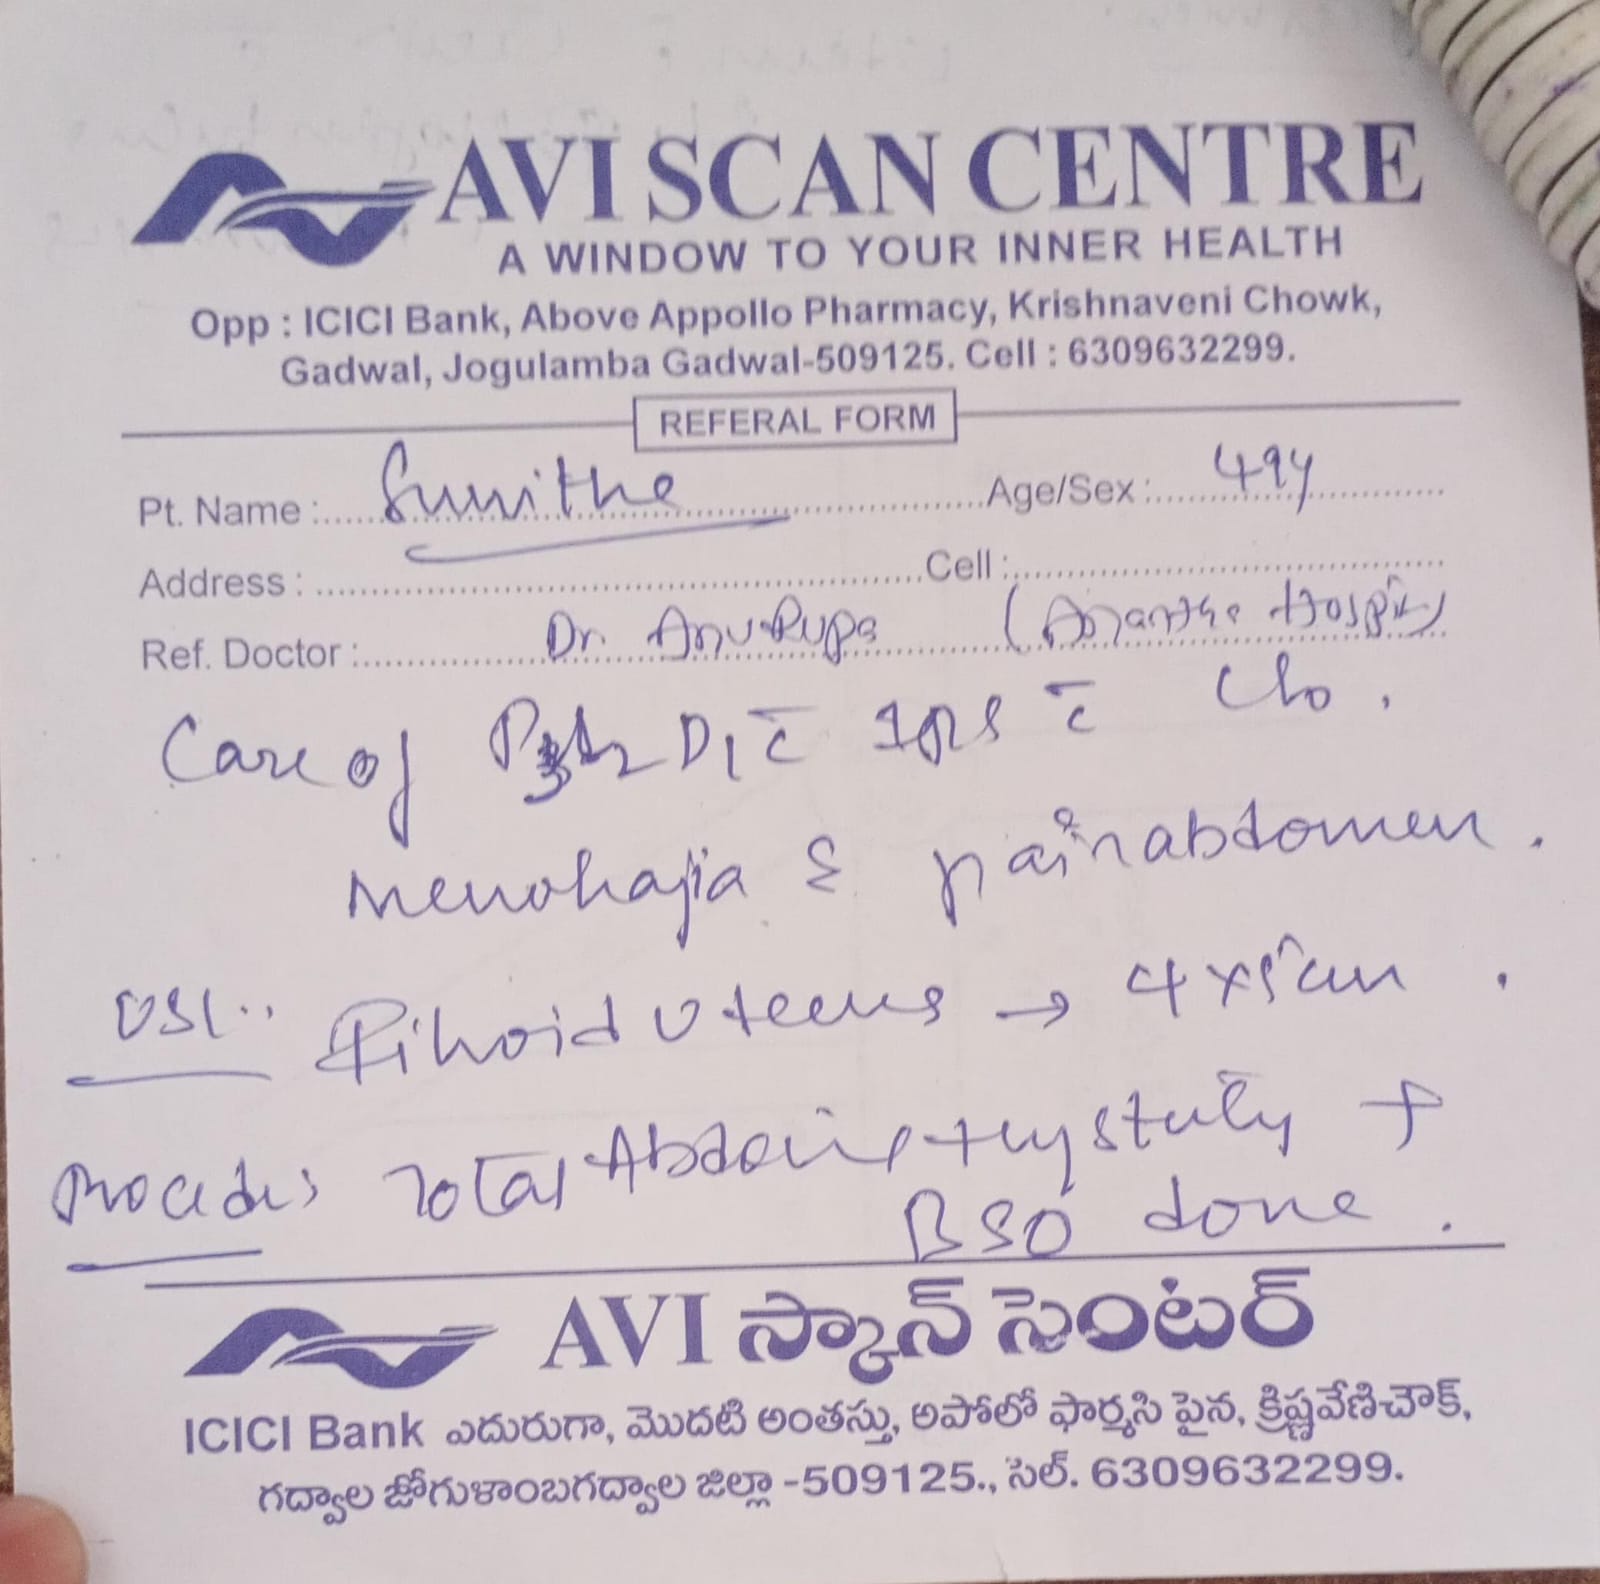 AVI SCAN CENTRE
A WINDOW TO YOUR INNER HEALTH
Opp : ICICI Bank, Above Appollo Pharmacy, Krishnaveni Chowk,
Gadwal, Jogulamba Gadwal-509125. Cell : 6309632299.
REFERAL FORM
Pt. Name : Sunitha Age/Sex : 49y
Address : Cell :
Ref. Doctor : Dr. Anurupa (Anantha Hospital)
Case of c̄ c̄ c/o.
Menohajia & pain abdomen.
Fibroid Uterus → 4 x 5 cm.
Total +
BSO done.
AVI స్కాన్ సెంటర్
ICICI Bank ఎదురుగా, మొదటి అంతస్తు, అపోలో ఫార్మసి పైన, క్రిష్ణవేణిచౌక్,
గద్వాల జోగుళాంబగద్వాల జిల్లా -509125., సెల్. 6309632299.